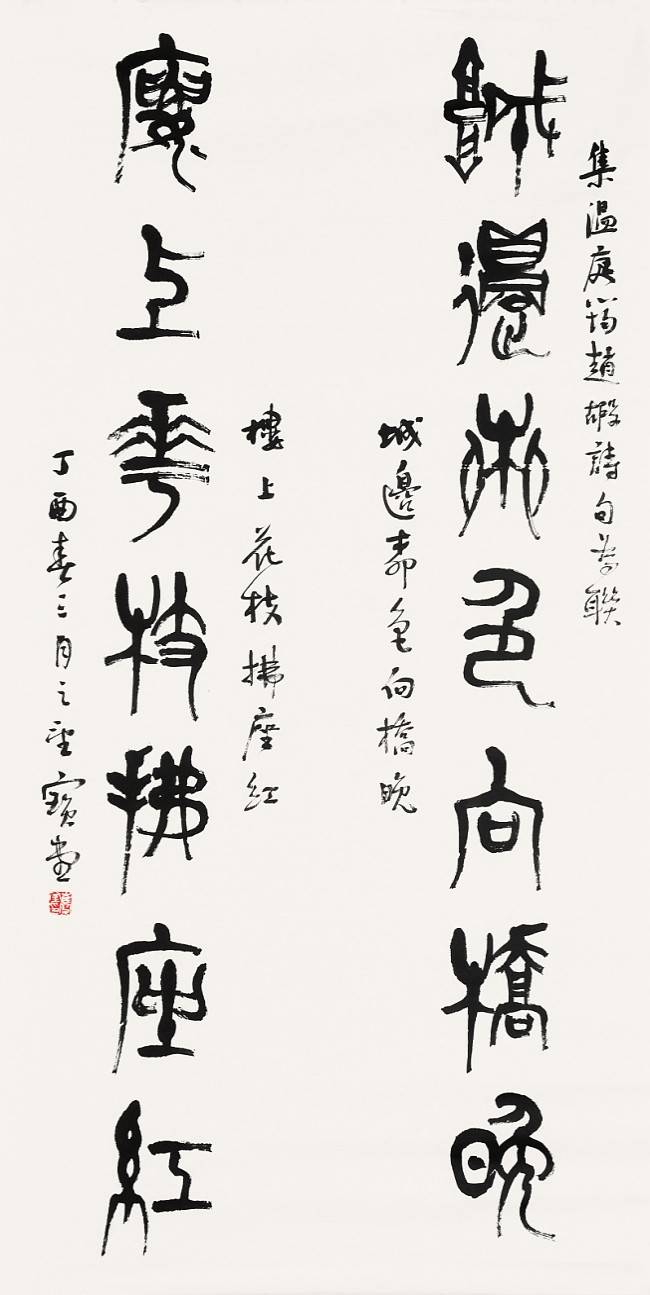 集温庭筠趙嘏詩句為聯
城邊柳色向橋晚
城邊柳色向橋晚
樓上花枝拂座紅
廔上花枝拂座紅
丁酉春三月之望寶